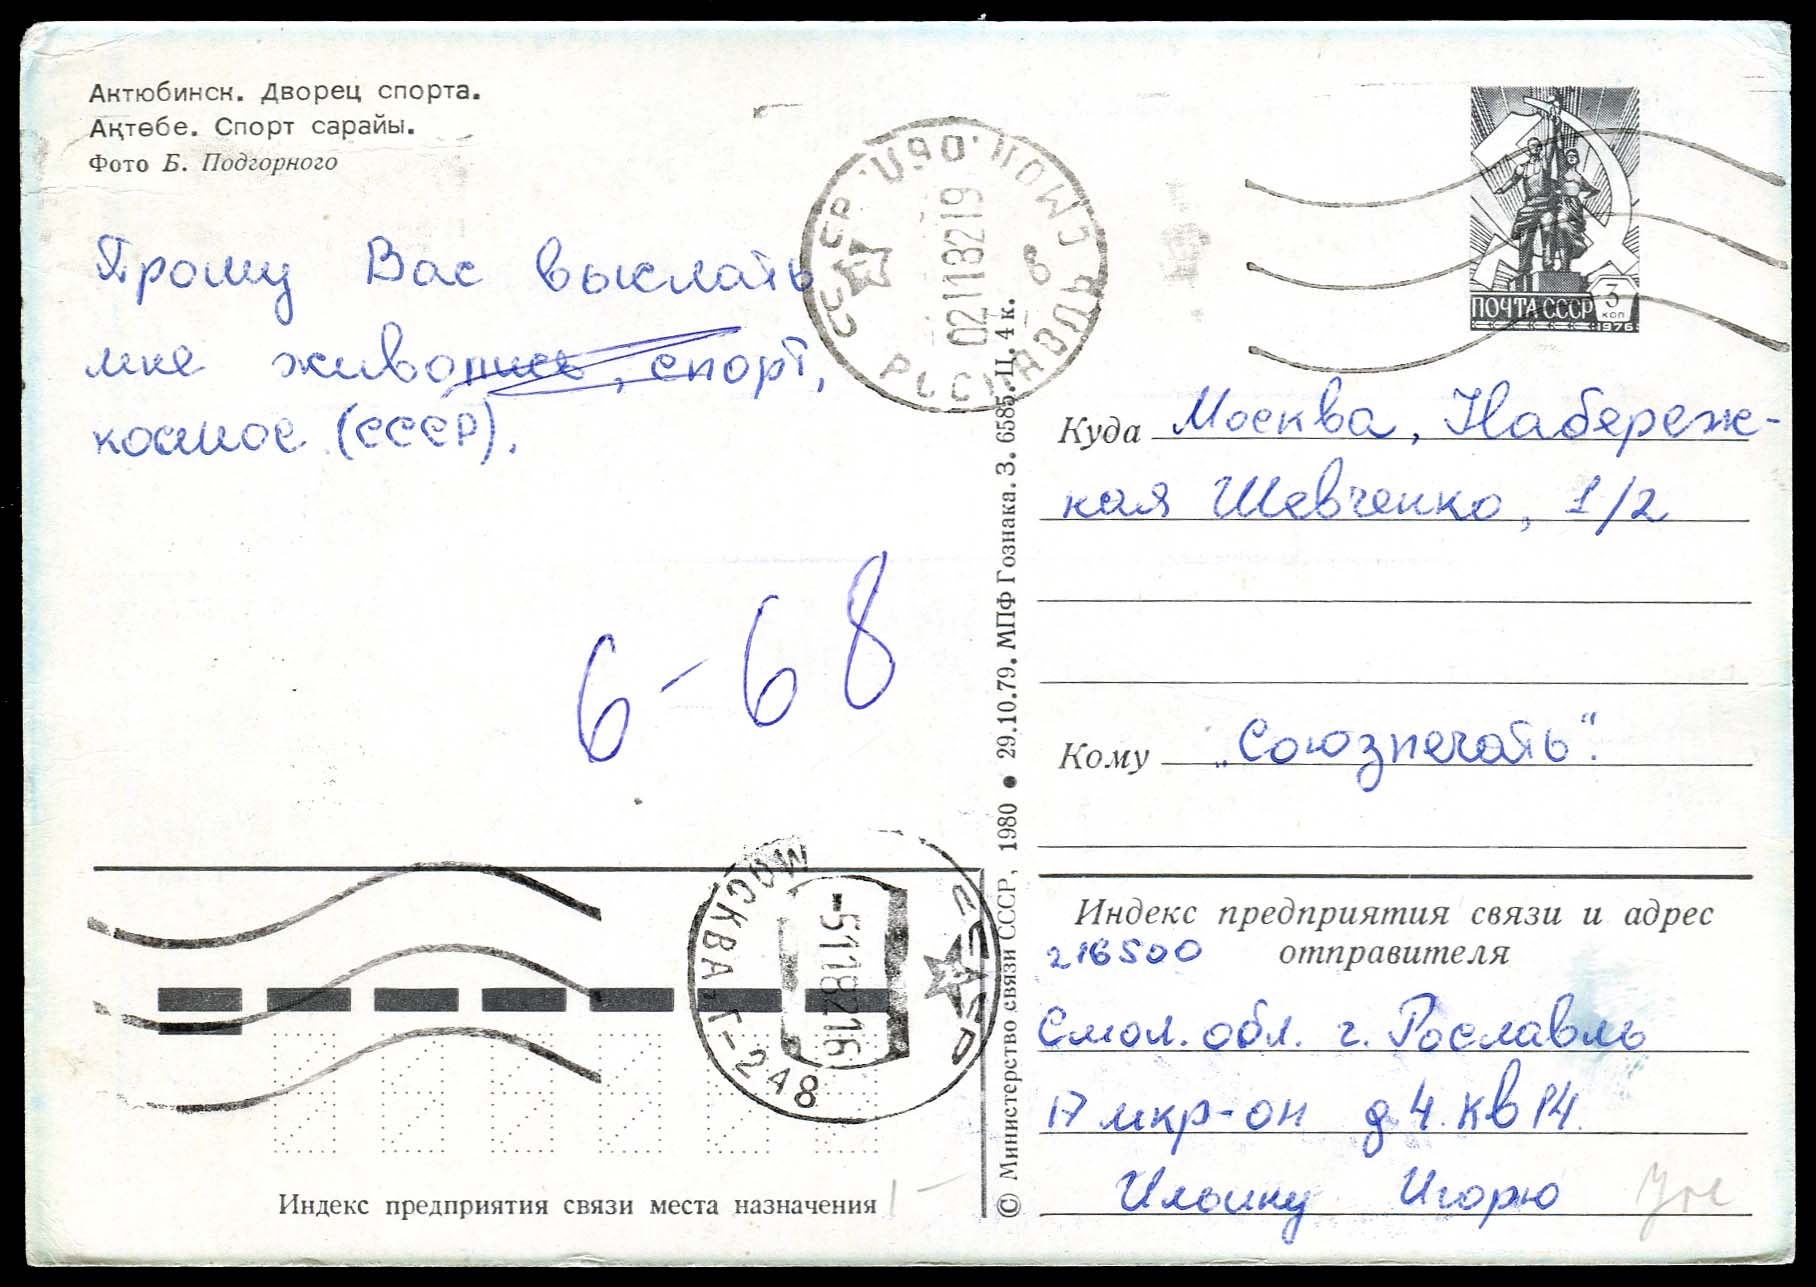 Актюбинск. Дворец спорта.
Ақтөбе. Спорт сарайы.
Фото Б. Подгорного
Прошу Вас выслать
мне живопись, спорт,
космос (СССР).
6-68
СССР
РОСЛАВЛЬ СМОЛ. ОБЛ.
021118219
в
ПОЧТА СССР 3 КОП
1976
Куда Москва, Набереж-
ная Шевченко, 1/2
Кому „Союзпечать".
Индекс предприятия связи и адрес
отправителя
216500
Смол. обл. г. Рославль
17 мкр-он д4. кв 14.
Ильину Игорю
МОСКВА Г-248
-5118216
Индекс предприятия связи места назначения
© Министерство связи СССР, 1980 ● 29.10.79. МПФ Гознака. З. 6585. Ц. 4 к.